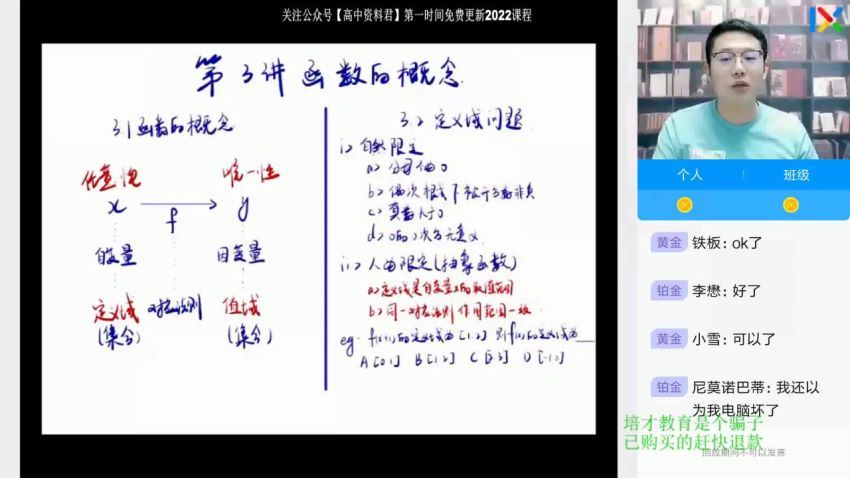 关注公众号【高中资料君】第一时间免费更新2022课程
第3讲 函数的概念
3.1 函数的概念
任意性
唯一性
x
f
y
自变量
因变量
定义域
对应法则
值域
(集合)
(集合)
3.2 定义域问题
i> 自然限定
a> 分母不为0
b> 偶次根式下被开方数非负
c> 真数大于0
d> 0的0次方无意义
ii> 人为限定(抽象函数)
a> 定义域是自变量x的取值范围
b> 同一对应法则 作用范围一致
个人
班级
黄金 铁板: ok了
铂金 李懋: 好了
黄金 小雪: 可以了
铂金 尼莫诺巴蒂: 我还以
为我电脑坏了
培才教育是个骗子
已购买的赶快退款
回放期间不可以发言